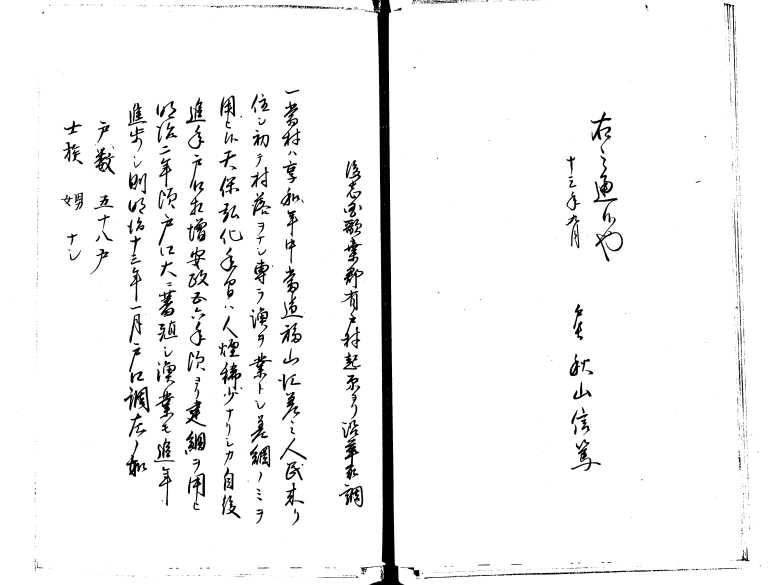 右之通候也
十三年九月
戸長 秋山信篤
後志国歌棄郡有戸村起原ヨリ沿革取調
一当村ハ享和年中当道福山江差之人民来リ
住シ初テ村落ヲナシ専ラ漁ヲ業トシ差網ノミヲ
用ヒ候天保弘化年間ハ人煙稀少ナリシカ自後
進年戸口相増安政五六年頃ヨリ建網ヲ用ヒ
明治二年頃戸口大ニ蕃殖シ漁業モ進年
進歩シ則明治十三年一月戸口調左ノ如
戸数 五十八戸
士族 男 ナシ